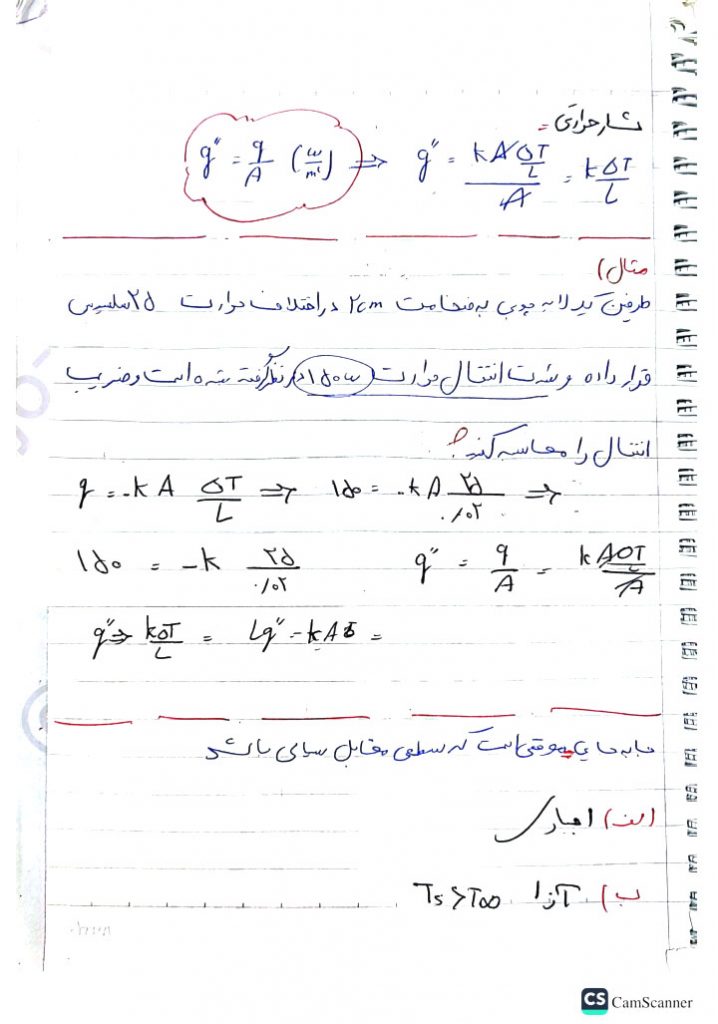 شار حرارتی =
q″ = q/A (w/m²) ⇒ q″ = kA ΔT/L / A = kΔT/L
مثال)
طرفین یک لایه چوبی به ضخامت ۲cm در اختلاف حرارت ۲۵ سلسیوس
قرار داده و شدت انتقال حرارت ۱۵۰w در نظر گرفته شده است و ضریب
انتقال را محاسبه کنید؟
q = -kA ΔT/L ⇒ ۱۵۰ = -kA ۲۵/۰/۰۲ ⇒
۱۵۰ = -k ۲۵/۰/۰۲ q″ = q/A = kAΔT/L / A
q″ ⇒ kΔT/L = Lq″ - kΔ =
جابه جایی موقعی است که سطحی مقابل سیالی باشد
الف) اجباری
ب) آزاد Ts > T∞
CS CamScanner